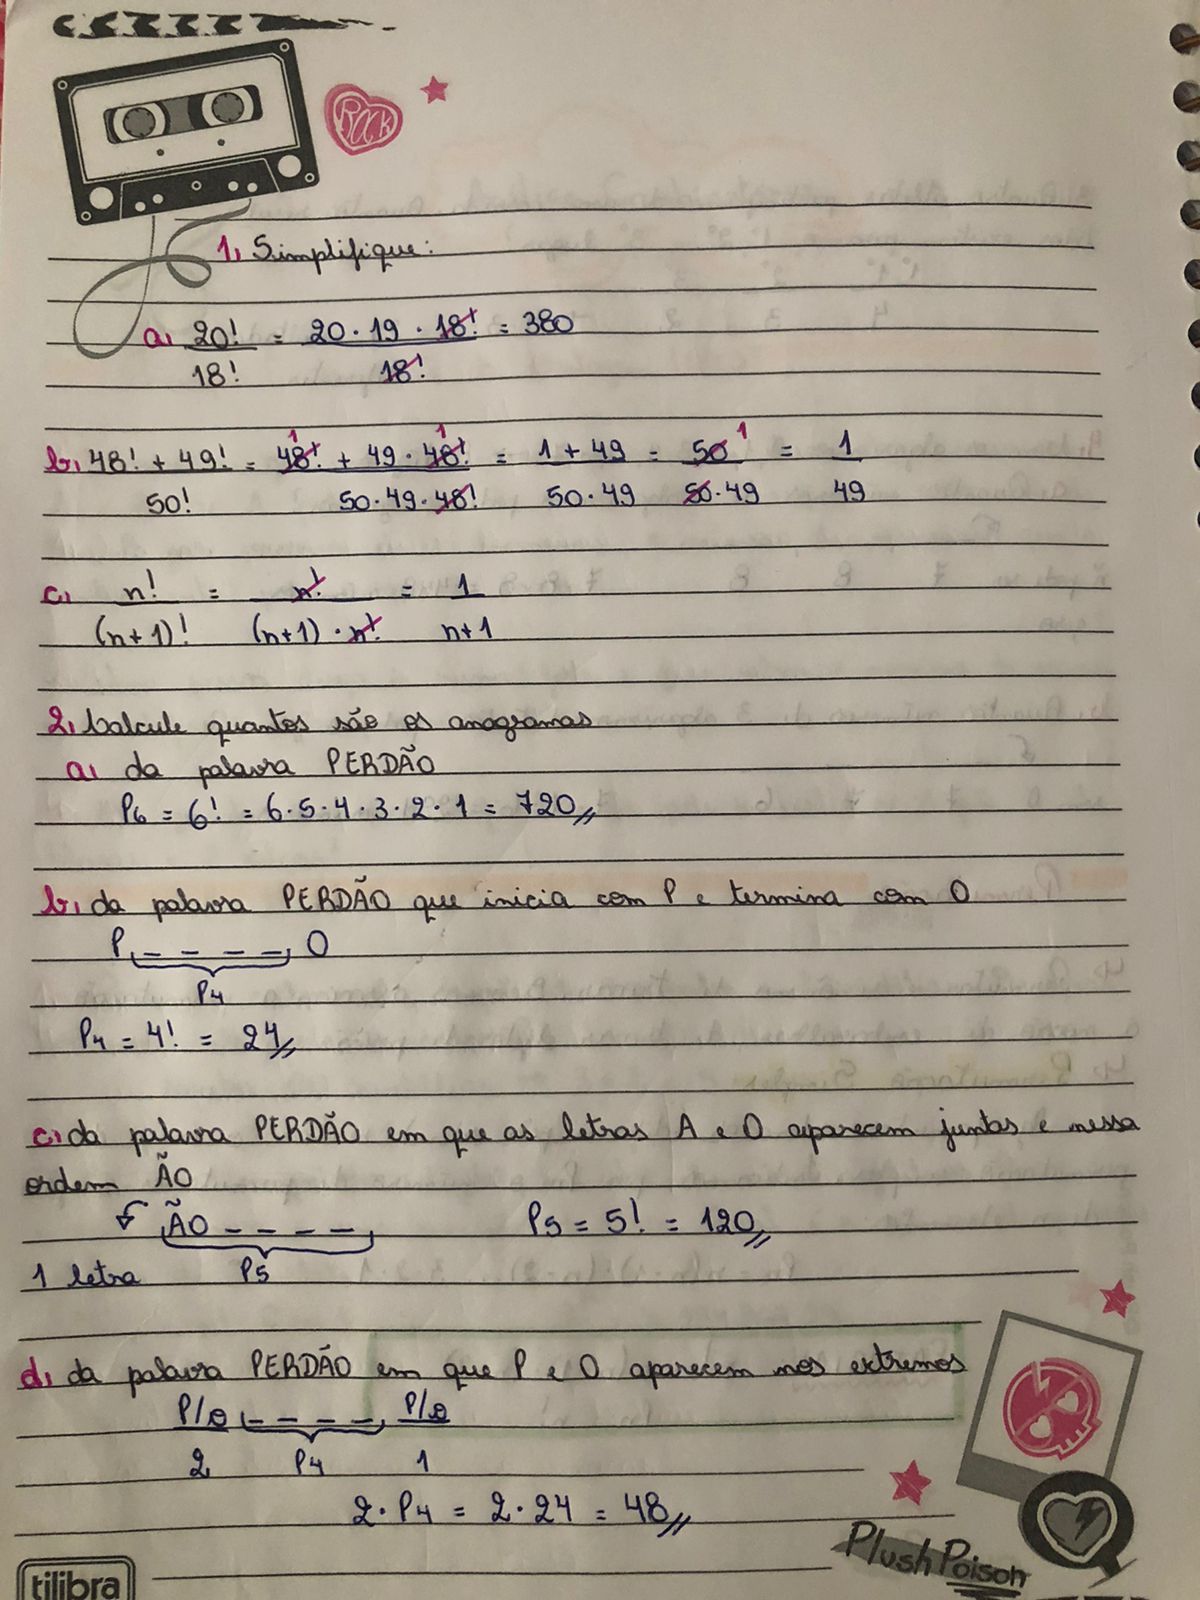 ROCK
1, Simplifique:
a, 20! = 20 · 19 · 18! = 380
18! 18!
b, 48! + 49! = 48! + 49 · 48! = 1 + 49 = 50 = 1
50! 50·49·48! 50·49 50·49 49
c, n! = n! = 1
(n+1)! (n+1) · n! n+1
2, Calcule quantos são os anagramas
a, da palavra PERDÃO
P6 = 6! = 6·5·4·3·2·1 = 720
b, da palavra PERDÃO que inicia com P e termina com O
P _ _ _ _ O
P4
P4 = 4! = 24
c, da palavra PERDÃO em que as letras A e O aparecem juntas e nessa
ordem ÃO
ÃO _ _ _ _ P5 = 5! = 120
1 letra P5
d, da palavra PERDÃO em que P e O aparecem nos extremos
P/O _ _ _ _ P/O
2 P4 1
2 · P4 = 2 · 24 = 48
Plush Poison
tilibra